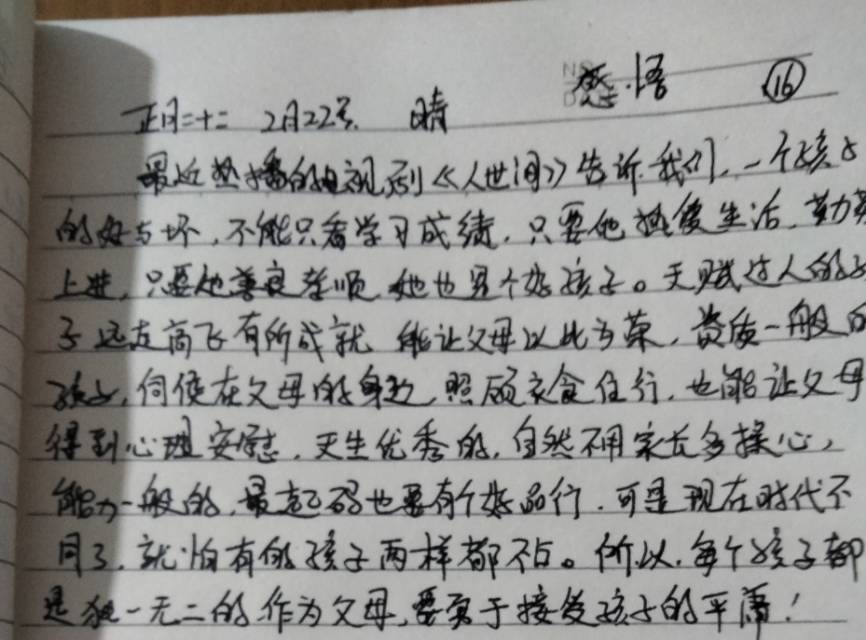 感悟 16
正月二十二 2月22号. 晴
最近热播的电视剧《人世间》告诉我们,一个孩子
的好与坏,不能只看学习成绩,只要他热爱生活,勤奋
上进,只要他善良孝顺,她也是个好孩子。天赋过人的孩
子远走高飞有所成就 能让父母以此为荣,资质一般的
孩子,伺候在父母的身边,照顾衣食住行,也能让父母
得到心理安慰.天生优秀的,自然不用家长多操心,
能力一般的,最起码也要有个好品行.可是现在时代不
同了,就怕有的孩子两样都不占。所以,每个孩子都
是独一无二的,作为父母,要勇于接受孩子的平庸!